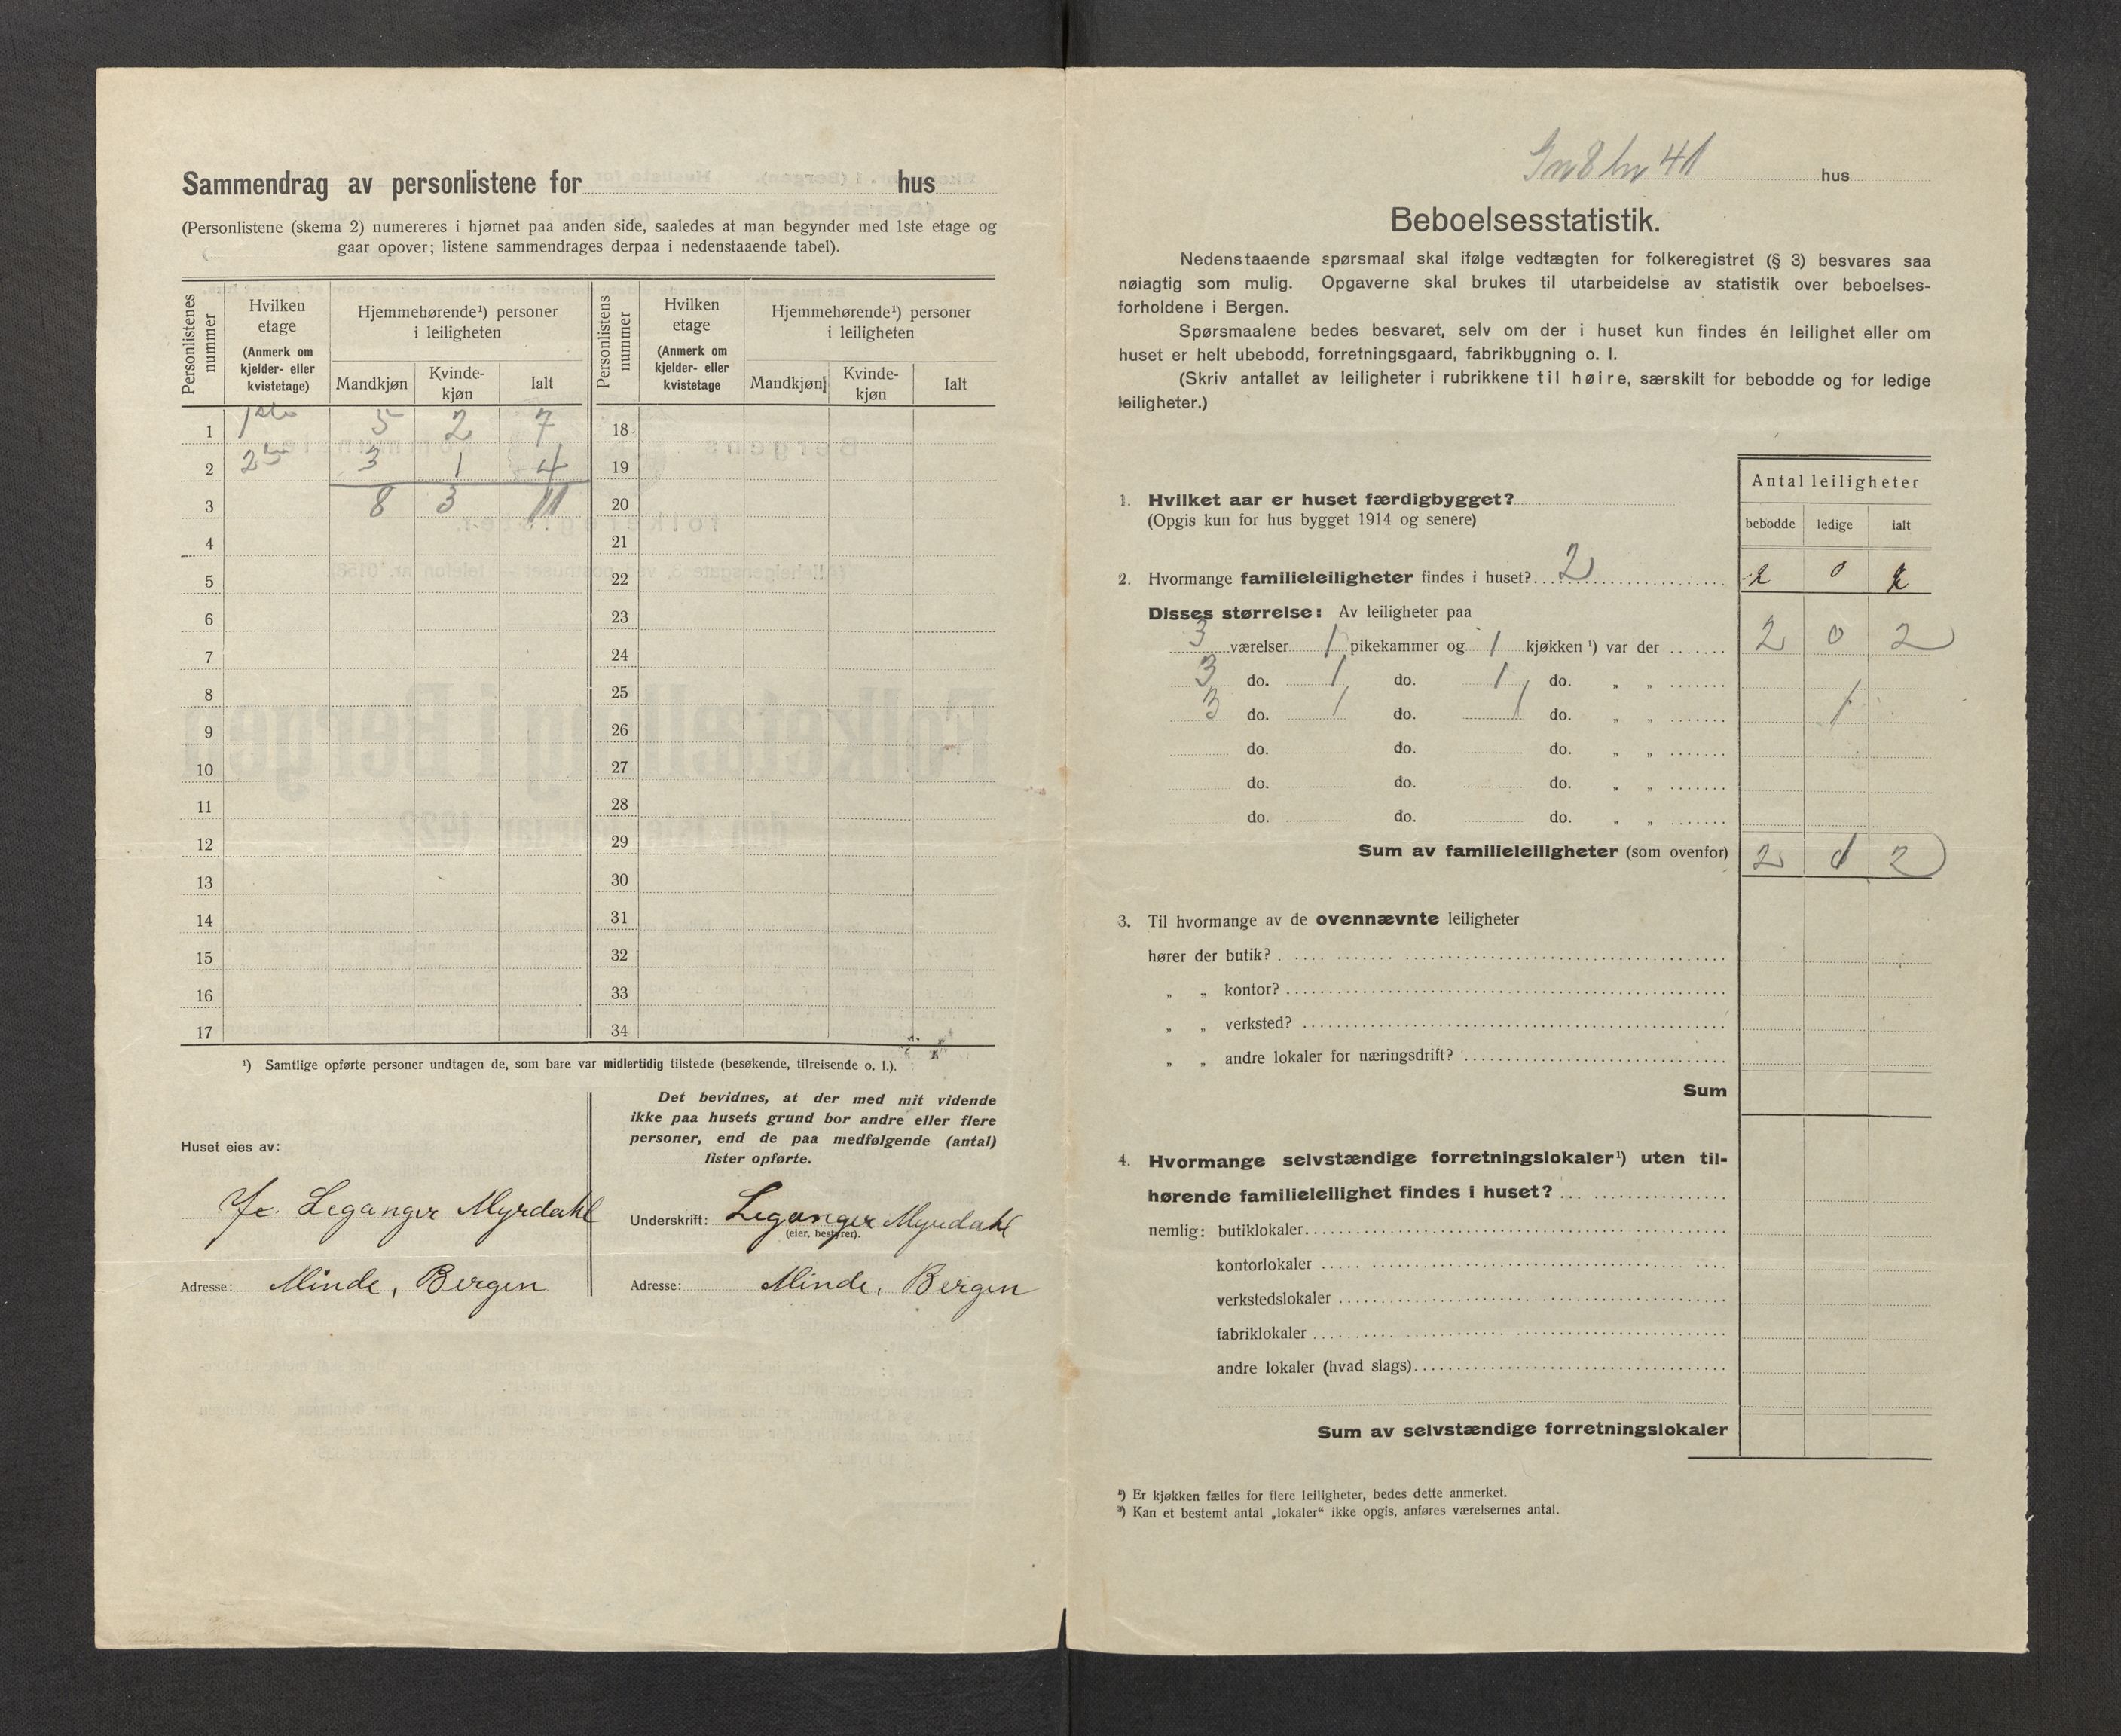 Sammendrag av personlistene for hus
(Personlistene (skema 2) numereres i hjørnet paa anden side, saaledes at man begynder med 1ste etage og
gaar opover; listene sammendrages derpaa i nedenstaaende tabel).
Personlistenes nummer
Hvilken etage (Anmerk om kjelder- eller kvistetage)
Hjemmehørende¹) personer i leiligheten
Mandkjøn Kvinde-kjøn Ialt
Personlistens nummer
Hvilken etage (Anmerk om kjelder- eller kvistetage
Hjemmehørende¹) personer i leiligheten
Mandkjøn Kvinde-kjøn Ialt
1 1ste 5 2 7 18
2 2den 3 1 4 19
3 8 3 11 20
4 21
5 22
6 23
7 24
8 25
9 26
10 27
11 28
12 29
13 30
14 31
15 32
16 33
17 34
¹) Samtlige opførte personer undtagen de, som bare var midlertidig tilstede (besøkende, tilreisende o. l.).
Huset eies av:
Leganger Myrdahl
Adresse: Minde, Bergen
Det bevidnes, at der med mit vidende
ikke paa husets grund bor andre eller flere
personer, end de paa medfølgende (antal)
lister opførte.
Underskrift: Leganger Myrdahl
(eier, bestyrer).
Adresse: Minde, Bergen
Gn 8 bn 41 hus
Beboelsesstatistik.
Nedenstaaende spørsmaal skal ifølge vedtægten for folkeregistret (§ 3) besvares saa
nøiagtig som mulig. Opgaverne skal brukes til utarbeidelse av statistik over beboelses-
forholdene i Bergen.
Spørsmaalene bedes besvaret, selv om der i huset kun findes én leilighet eller om
huset er helt ubebodd, forretningsgaard, fabrikbygning o. l.
(Skriv antallet av leiligheter i rubrikkene til høire, særskilt for bebodde og for ledige
leiligheter.)
Antal leiligheter
bebodde ledige ialt
1. Hvilket aar er huset færdigbygget?
(Opgis kun for hus bygget 1914 og senere)
2. Hvormange familieleiligheter findes i huset? 2 2 0 2
Disses størrelse: Av leiligheter paa
3 værelser 1 pikekammer og 1 kjøkken ¹) var der 2 0 2
3 do. 1 do. 1 do. „ „
3 do. 1 do. 1 do. „ „ 1
do. do. do. „ „
do. do. do. „ „
do. do. do. „ „
Sum av familieleiligheter (som ovenfor) 2 2
3. Til hvormange av de ovennævnte leiligheter
hører der butik?
„ „ kontor?
„ „ verksted?
„ „ andre lokaler for næringsdrift?
Sum
4. Hvormange selvstændige forretningslokaler¹) uten til-
hørende familieleilighet findes i huset?
nemlig: butiklokaler
kontorlokaler
verkstedslokaler
fabriklokaler
andre lokaler (hvad slags)
Sum av selvstændige forretningslokaler
¹) Er kjøkken fælles for flere leiligheter, bedes dette anmerket.
²) Kan et bestemt antal „lokaler“ ikke opgis, anføres værelsernes antal.